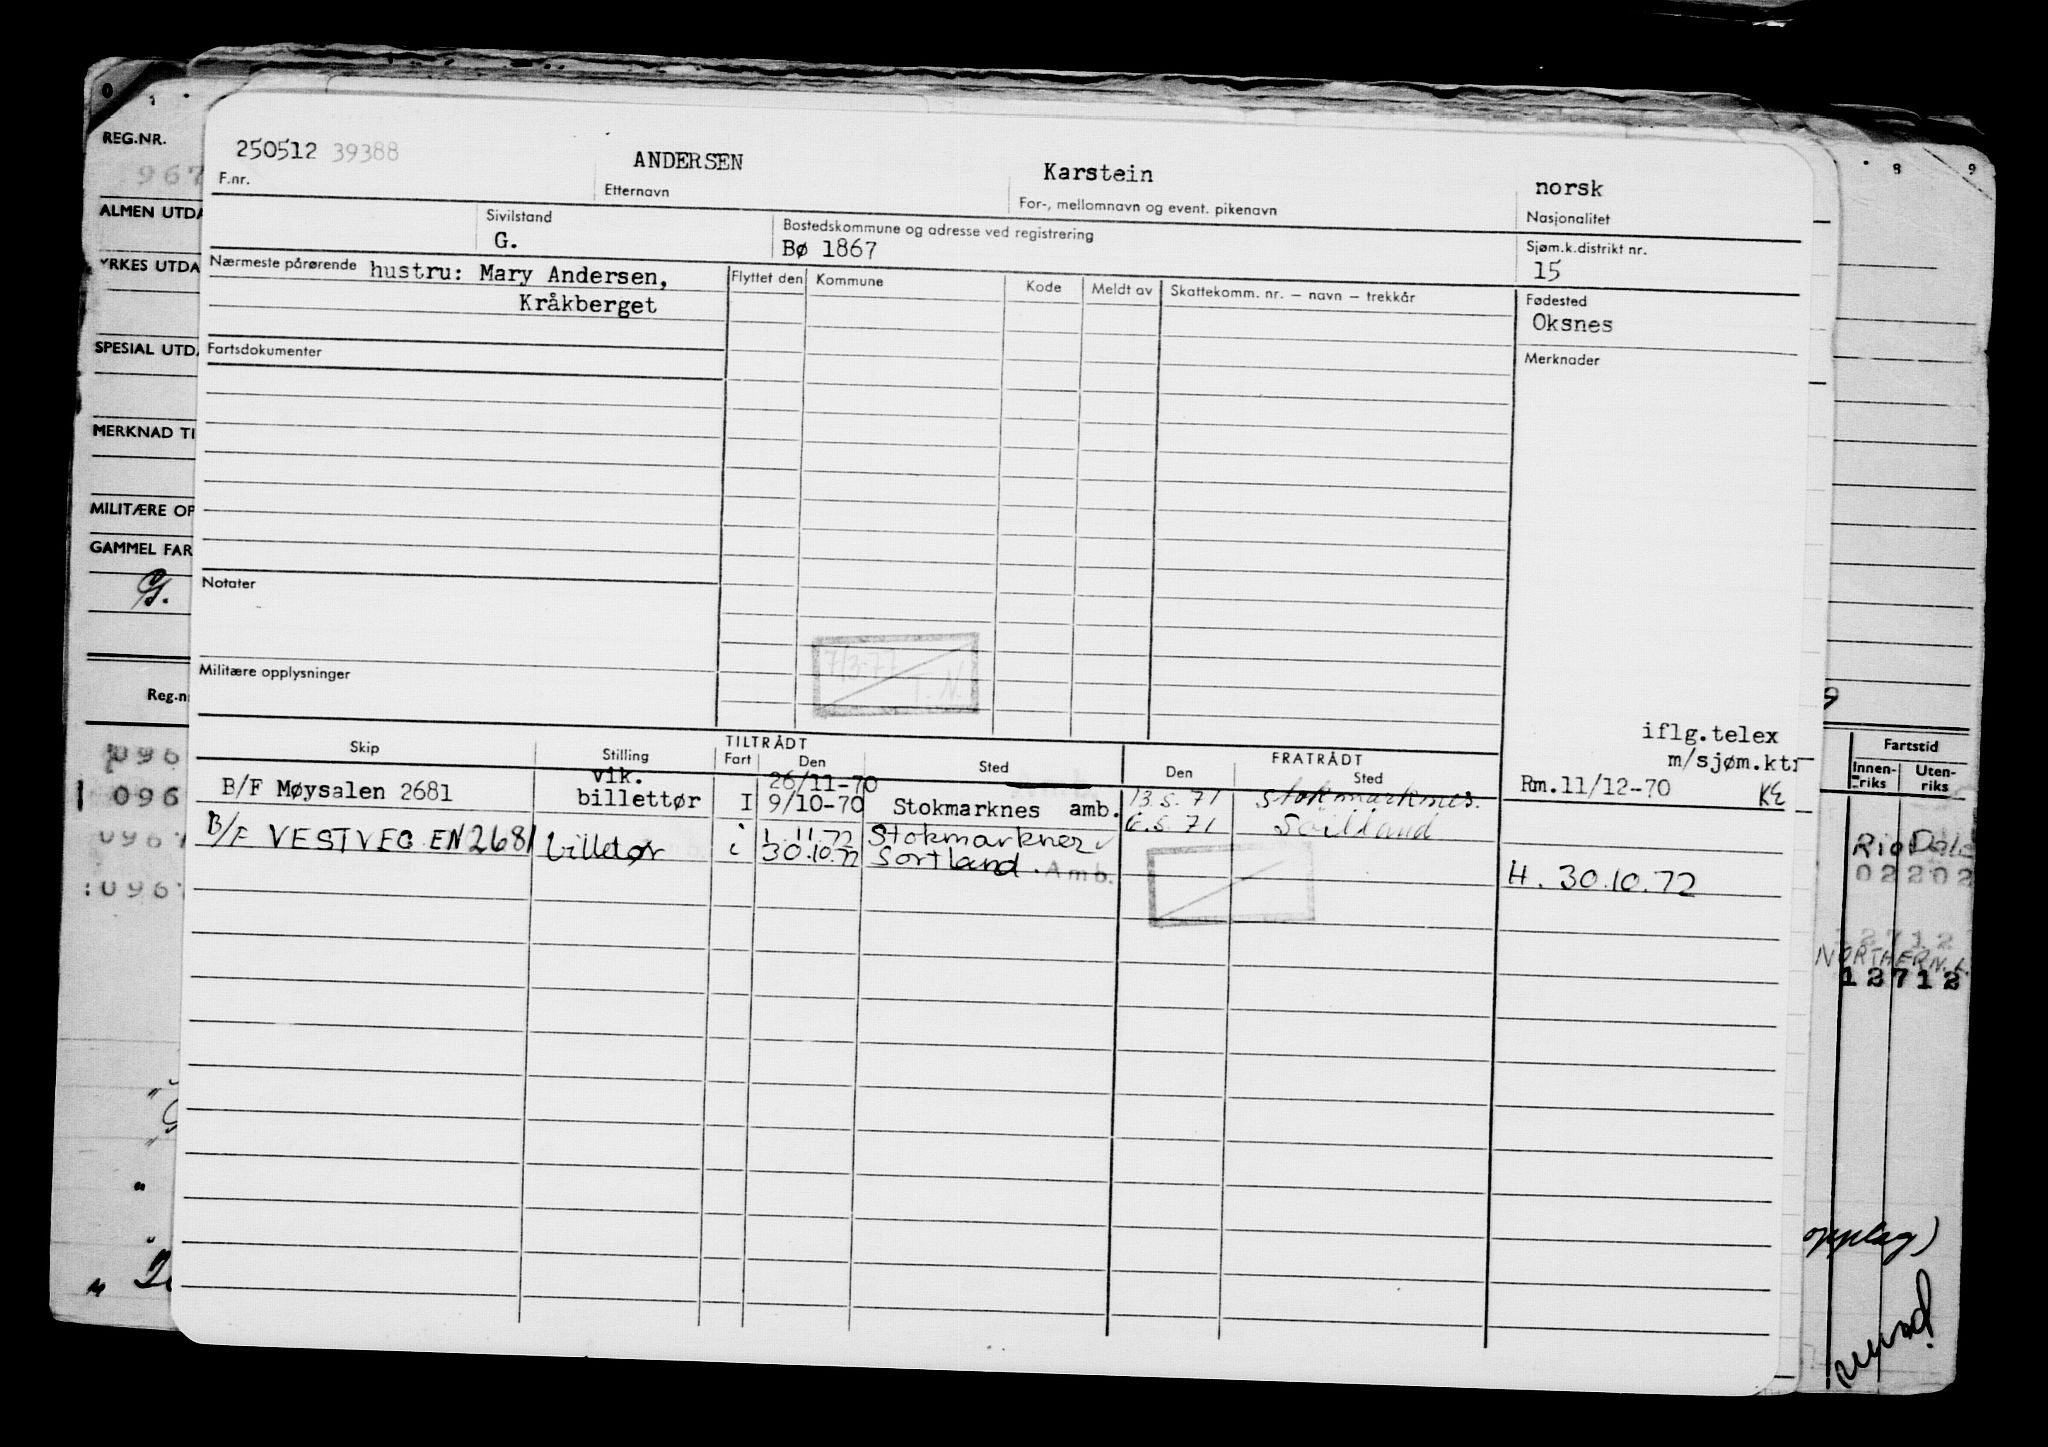 250512 39388 ANDERSEN Karstein norsk
F.nr. Etternavn For-, mellomnavn og event. pikenavn Nasjonalitet
Sivilstand Bostedskommune og adresse ved registrering Sjøm.k.distrikt nr.
G. Bø 1867 15
Nærmeste pårørende hustru: Mary Andersen, Flyttet den Kommune Kode Meldt av Skattekomm. nr. – navn – trekkår Fødested
Kråkberget Oksnes
Fartsdokumenter Merknader
Notater
7/3-77
T. N.
Militære opplysninger
iflg.telex
m/sjøm.ktr
TILTRÅDT FRATRÅDT
Skip Stilling Fart Den Sted Den Sted
vik. 26/11-70
B/F Møysalen 2681 billettør I 9/10-70 Stokmarknes amb. 13.5.71 Stokmarknes. Rm.11/12-70 KE
6.5.71
B/F VESTVEG EN 2681 billetør i 1.11.72 Stokmarknes
30.10.72 Sortland. Amb.
H. 30.10.72
REG.NR.
967
ALMEN UTDA
YRKES UTDA
SPESIAL UTDA
MERKNAD TI
MILITÆRE OP
GAMMEL FAR
G.
Reg.n
096
096
0967
0967
0 1 8 9
9
Fartstid
Innen-riks Uten-riks
02202
12712
NORTHERN. L.
12712
opplag)